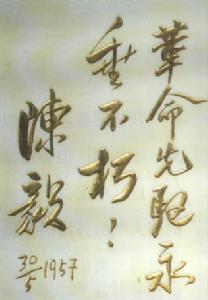 革命先烈永
垂不朽！
陳毅
30/5 1957